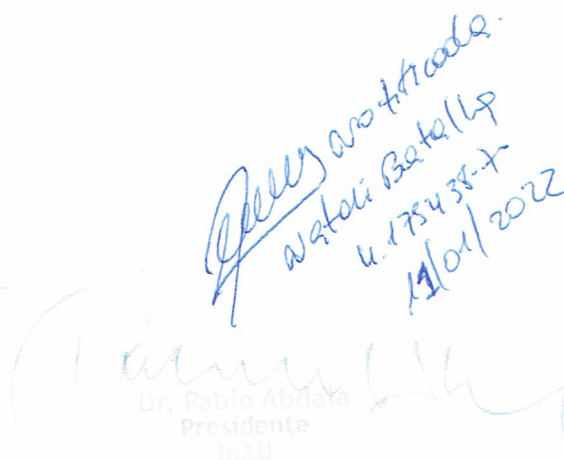 notificada.
Natali Batalla
4.175438-7
11/01/2022
Dr. Pablo Abdala
Presidente
INAU